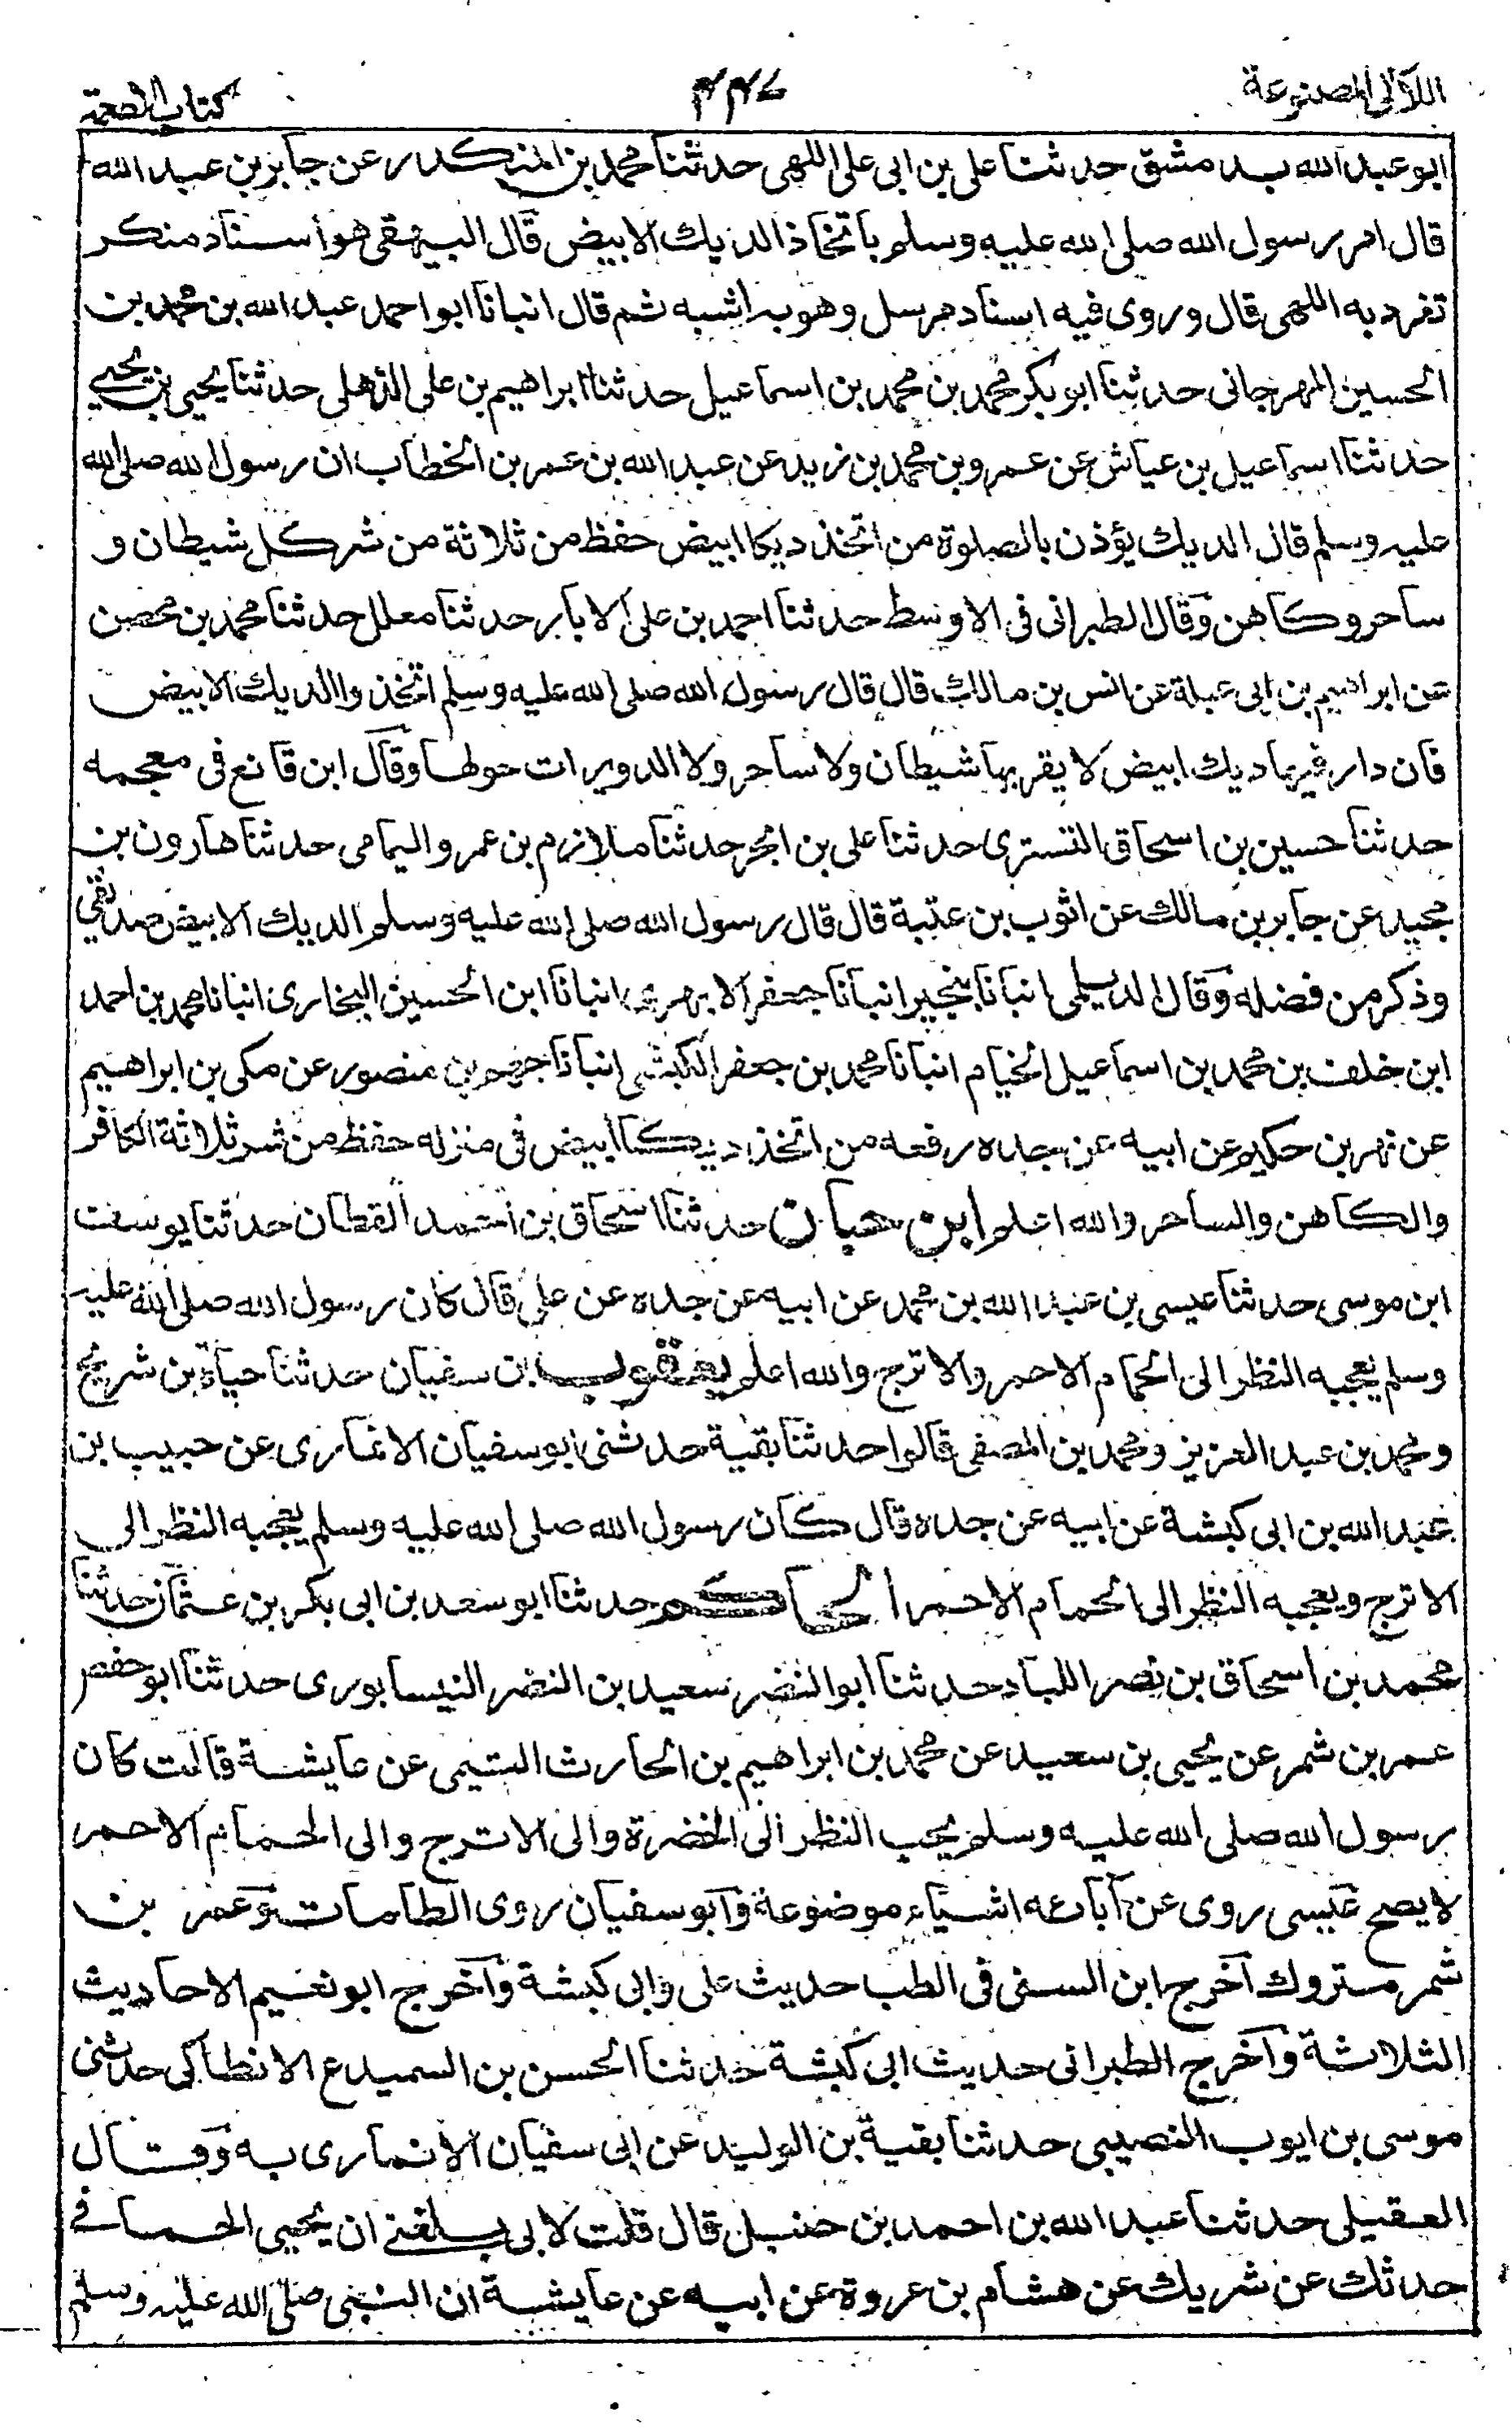 اللآلى المصنوعة ٤٤٧ كتاب الاطعمة
ابو عبد الله بدمشق حدثنا على بن ابى على اللهبى حدثنا محمد بن المنكدر عن جابر بن عبد الله
قال امر رسول الله صلى الله عليه وسلم باتخاذ الديك الابيض قال البيهقى هو اسناد منكر
تفرد به اللهبى قال وروى فيه اسناد مرسل وهو به اشبه ثم قال انبانا ابو احمد عبد الله بن محمد بن
الحسين المهرجانى حدثنا ابو بكر محمد بن محمد بن اسماعيل حدثنا ابراهيم بن على الذهلى حدثنا يحيى بن يحيى
حدثنا اسماعيل بن عياش عن عمرو بن محمد بن زيد عن عبد الله بن عمر بن الخطاب ان رسول الله صلى الله
عليه وسلم قال الديك يؤذن بالصلوة من اتخذ ديكا ابيض حفظ من ثلاثة من شر كل شيطان و
ساحر وكاهن وقال الطبرانى فى الاوسط حدثنا احمد بن على الابار حدثنا معلل حدثنا محمد بن محصن
عن ابراهيم بن ابى عبلة عن انس بن مالك قال قال رسول الله صلى الله عليه وسلم اتخذوا الديك الابيض
فان دار فيها ديك ابيض لا يقربها شيطان ولا ساحر ولا الدويرات حولها وقال ابن قانع فى معجمه
حدثنا حسين بن اسحاق التسترى حدثنا على بن ابحر حدثنا ملازم بن عمرو اليمامى حدثنا هارون بن
مجيد عن جابر بن مالك عن اثوب بن عتبة قال قال رسول الله صلى الله عليه وسلم الديك الابيض صديقى
وذكر من فضله وقال الديلمى انبانا بنجير انبانا جعفر الابهرى انبانا ابن الحسين البخارى انبانا محمد بن احمد
ابن خلف بن محمد بن اسماعيل الخيام انبانا محمد بن جعفر الكبشى انبانا جهم بن منصور عن مكى بن ابراهيم
عن بهز بن حكيم عن ابيه عن جده رفعه من اتخذ ديكا ابيض فى منزله حفظ من شر ثلاثة الكافر
والكاهن والساحر والله اعلم ابن حبان حدثنا اسحاق بن احمد القطان حدثنا يوسف
ابن موسى حدثنا عيسى بن عبد الله بن محمد عن ابيه عن جده عن على قال كان رسول الله صلى الله عليه
وسلم يعجبه النظر الى الحمام الاحمر والاترج والله اعلم يعقوب بن سفيان حدثنا حياة بن شريح
ومحمد بن عبد العزيز ومحمد بن المصفى قالوا حدثنا بقية حدثنى ابو سفيان الانمارى عن حبيب بن
عبد الله بن ابى كبشة عن ابيه عن جده قال كان رسول الله صلى الله عليه وسلم يعجبه النظر الى
الاترج ويعجبه النظر الى الحمام الاحمر الحاكم حدثنا ابو سعد بن ابى بكر بن عثمان حدثنا
محمد بن اسحاق بن نصر اللباد حدثنا ابو النضر سعيد بن النضر النيسابورى حدثنا ابو حفص
عمر بن شمر عن يحيى بن سعيد عن محمد بن ابراهيم بن الحارث التيمى عن عايشة قالت كان
رسول الله صلى الله عليه وسلم يحب النظر الى الخضرة والى الاترج والى الحمام الاحمر
لا يصح عيسى روى عن آبائه اشياء موضوعة وابو سفيان روى الطامات وعمر بن
شمر متروك اخرج ابن السنى فى الطب حديث على وابى كبشة واخرج ابو نعيم الاحاديث
الثلاثة واخرج الطبرانى حديث ابى كبشة حدثنا الحسن بن السميدع الانطاكى حدثنى
موسى بن ايوب النصيبى حدثنا بقية بن الوليد عن ابى سفيان الانمارى به وقال
العقيلى حدثنا عبد الله بن احمد بن حنبل قال قلت لابى بلغنى ان يحيى الحمانى
حدثك عن شريك عن هشام بن عروة عن ابيه عن عايشة ان النبى صلى الله عليه وسلم